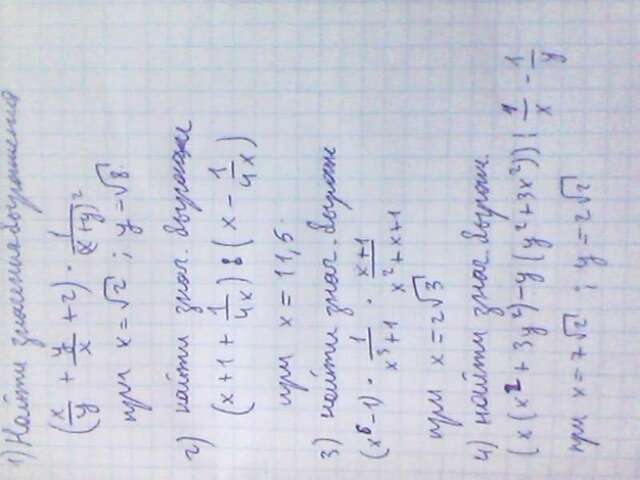 1) Найти значения выражения
(x/y + y/x + 2) · 1/(x+y)²
при x = √2 ; y = √8.
2) найти знач. выражения
(x + 1 + 1/4x) : (x − 1/4x)
при x = 11,5.
3) найти знач. выраж
(x⁶−1) · 1/x³+1 · x+1/x²+x+1
при x = 2√3
4) найти знач. выраж.
(x(x²+3y²)−y(y²+3x²)) : 1/x − 1/y
при x = 7√2 ; y = 2√2